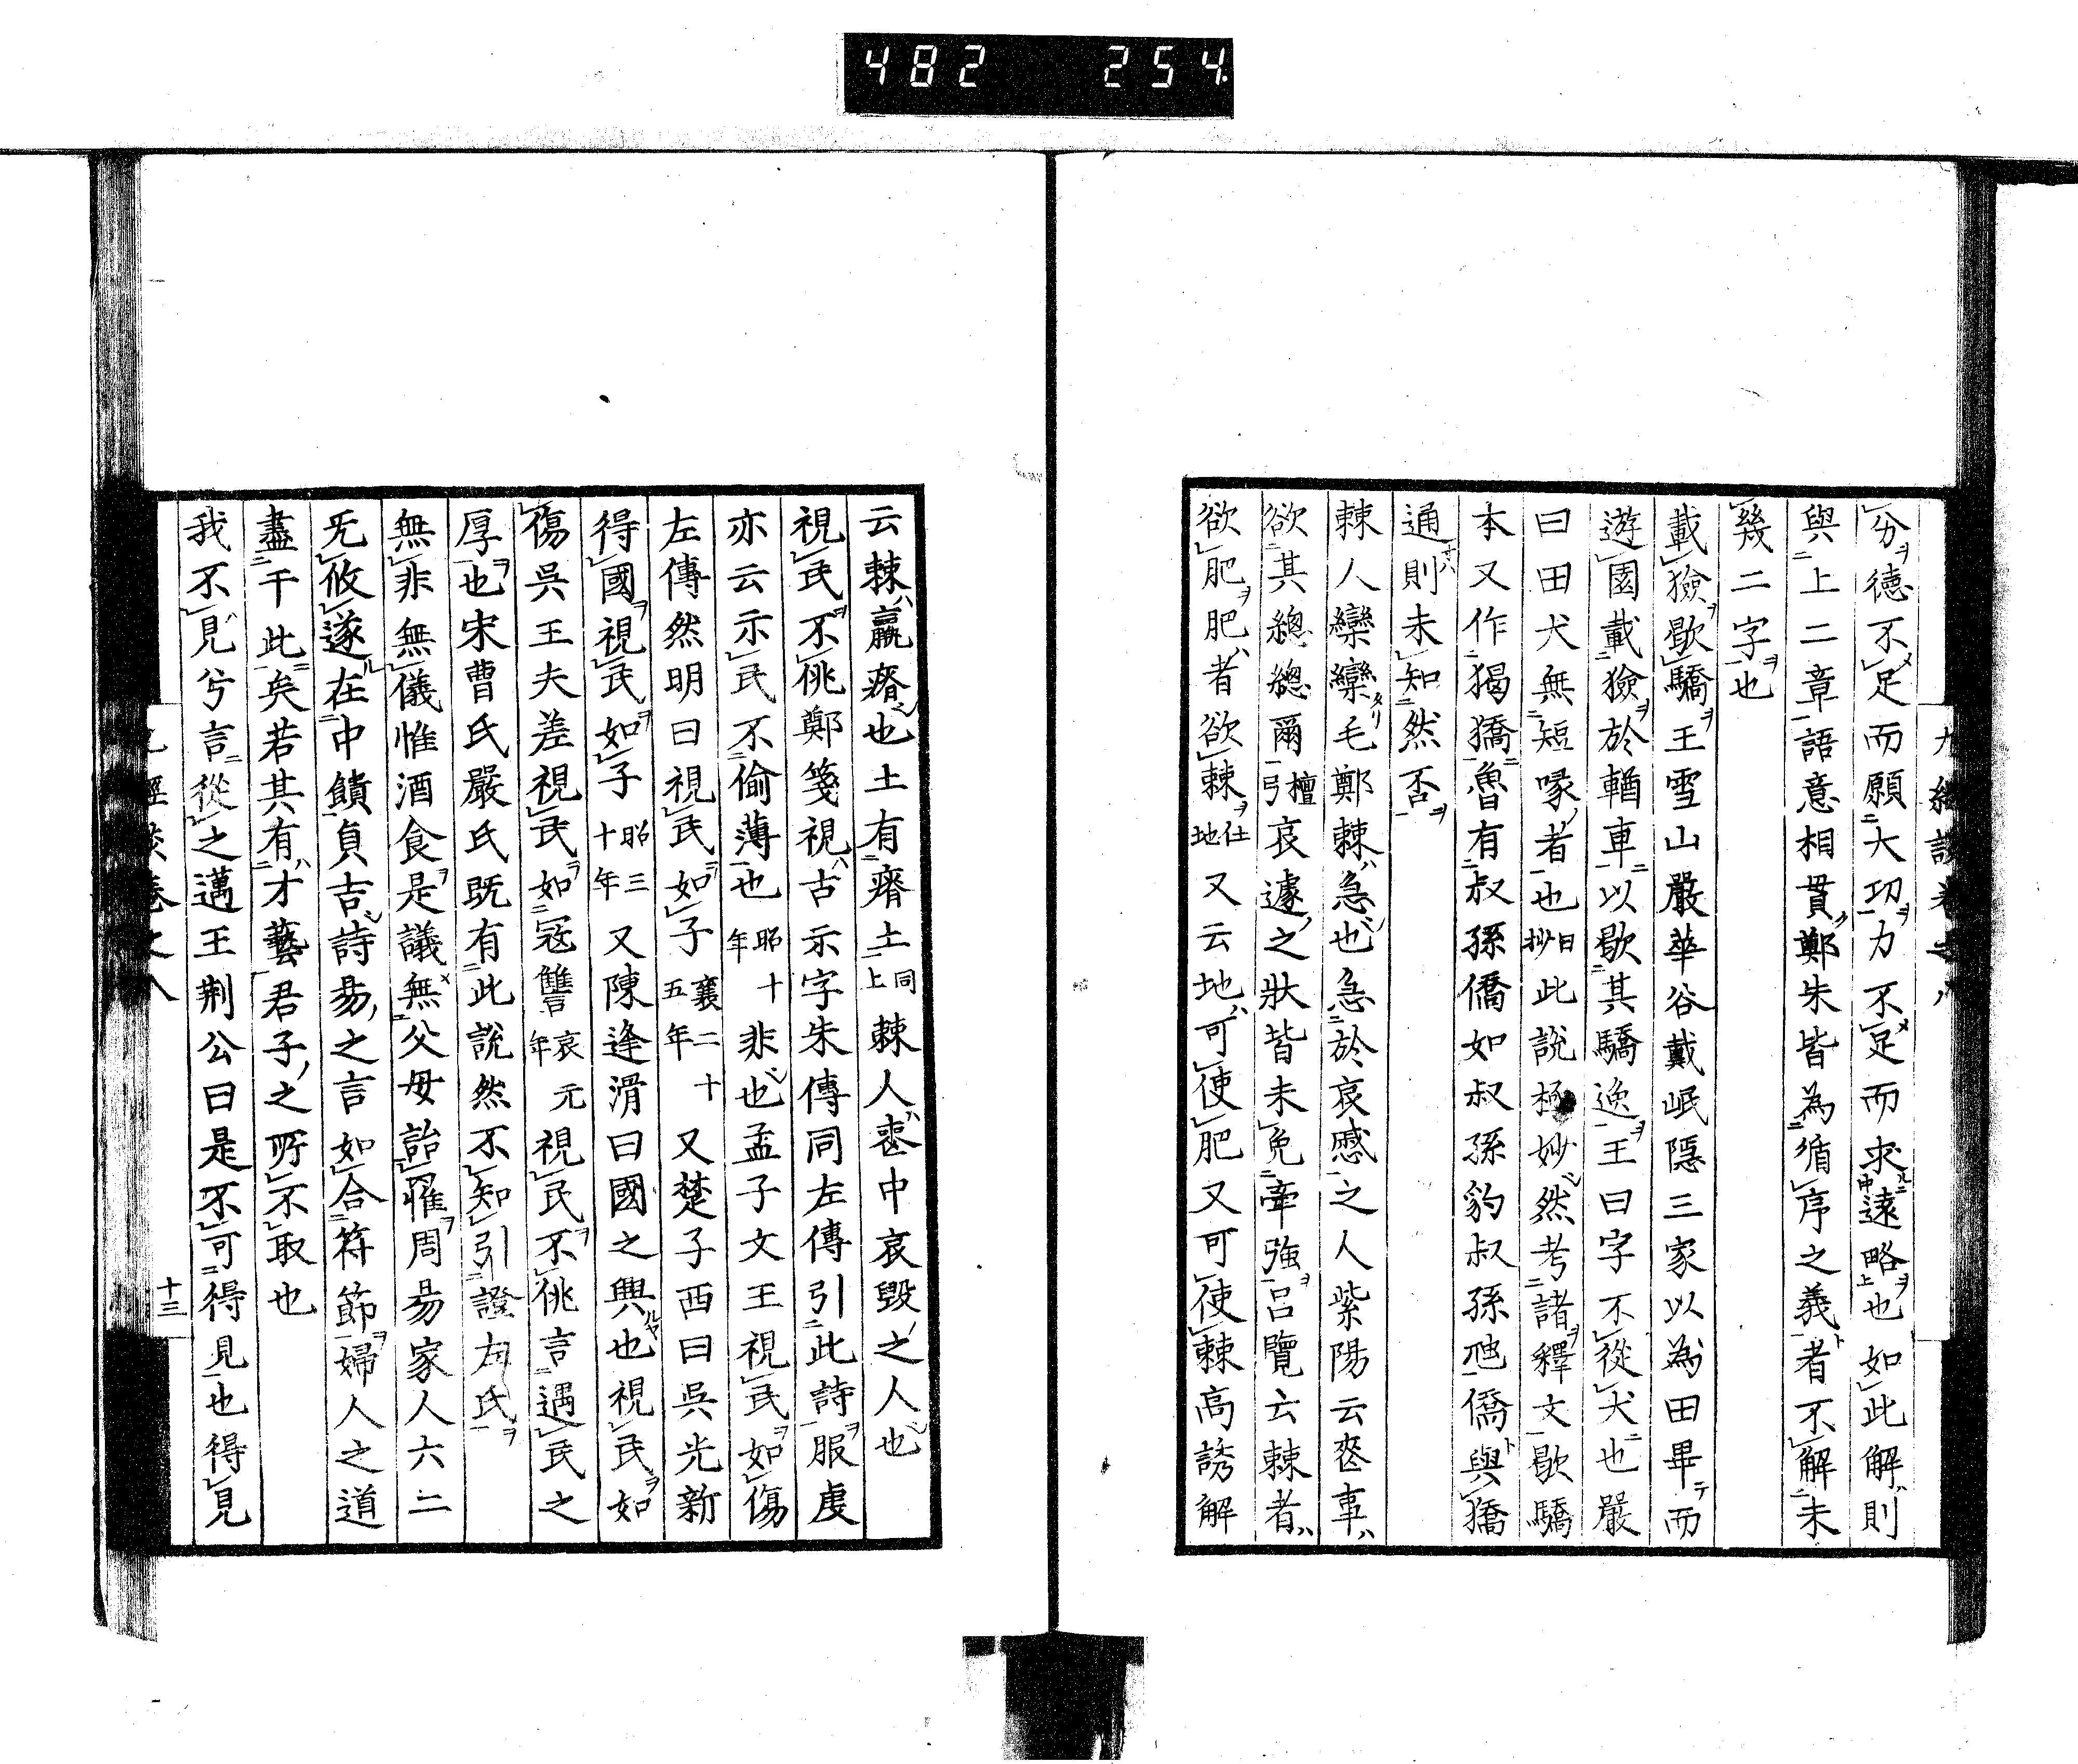 482 254
分德不足而願大功力不足而求遠略也如此解則
與上二章語意相貫鄭朱皆為循序之義者不解未
幾二字也
載獫歇驕王雪山嚴華谷戴岷隱三家以為田畢而
遊園載獫於輶車以歇其驕逸王曰字不從犬也嚴
曰田犬無短喙者也日抄此說極妙然考諸釋文歇驕
本又作猲獢魯有叔孫僑如叔孫豹叔孫虺僑與獢
通則未知然否
棘人欒欒毛鄭棘急也急於哀慼之人紫陽云喪事
欲其總總爾檀弓哀遽之狀皆未免牽強呂覽云棘者
欲肥肥者欲棘任地又云地可使肥又可使棘高誘解
云棘羸瘠也土有瘠土同上棘人喪中哀毀之人也
視民不恌鄭箋視古示字朱傳同左傳引此詩服虔
亦云示民不偷薄也昭十年非也孟子文王視民如傷
左傳然明曰視民如子襄二十五年又楚子西曰吳光新
得國視民如子昭三十年又陳逢滑曰國之興也視民如
傷吳王夫差視民如寇讐哀元年視民不恌言遇民之
厚也宋曹氏嚴氏既有此說然不知引證左氏
無非無儀惟酒食是議無父母詒罹周易家人六二
无攸遂在中饋貞吉詩易之言如合符節婦人之道
盡于此矣若其有才藝君子之所不取也
我不見兮言從之邁王荊公曰是不可得見也得見
十三